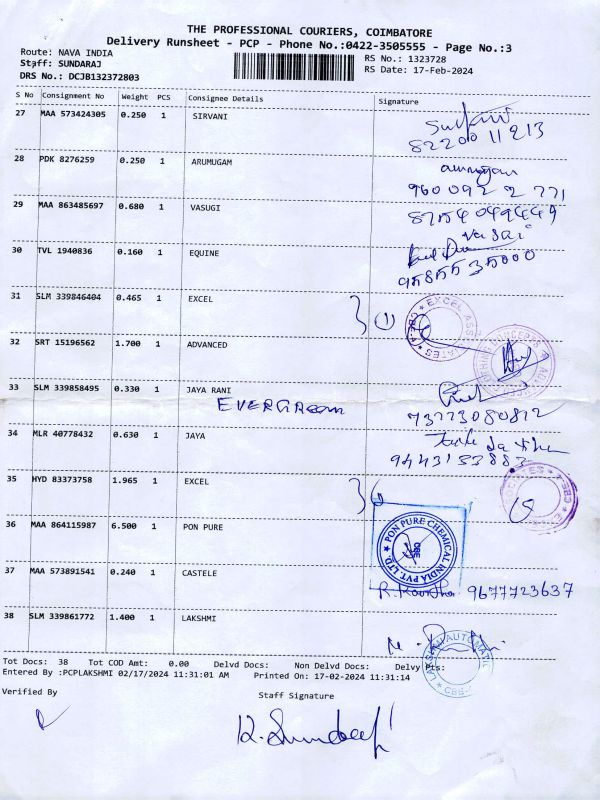 THE PROFESSIONAL COURIERS, COIMBATORE
Delivery Runsheet - PCP - Phone No.:0422-3505555 - Page No.:3
Route: NAVA INDIA
RS No.: 1323728
Staff: SUNDARAJ
RS Date: 17-Feb-2024
DRS No.: DCJB132372803
S No Consignment No Weight PCS Consignee Details Signature
27 MAA 573424305 0.250 1 SIRVANI
8220011213
28 PDK 8276259 0.250 1 ARUMUGAM
arumugam
9600922771
29 MAA 863485697 0.680 1 VASUGI
8754049449
30 TVL 1940836 0.160 1 EQUINE
9585535000
31 SLM 339846404 0.465 1 EXCEL
EXCEL ASSOCIATES CBE-4
32 SRT 15196562 1.700 1 ADVANCED
33 SLM 339858495 0.330 1 JAYA RANI
EVERGREEN
34 MLR 40778432 0.630 1 JAYA
9443153883
35 HYD 83373758 1.965 1 EXCEL
36 MAA 864115987 6.500 1 PON PURE
PON PURE CHEMICAL INDIA PVT. LTD. CBE
37 MAA 573891541 0.240 1 CASTELE
9677723637
38 SLM 339861772 1.400 1 LAKSHMI
Tot Docs: 38 Tot COD Amt: 0.00 Delvd Docs: Non Delvd Docs: Delvy Pts:
Entered By :PCPLAKSHMI 02/17/2024 11:31:01 AM Printed On: 17-02-2024 11:31:14
Verified By
Staff Signature